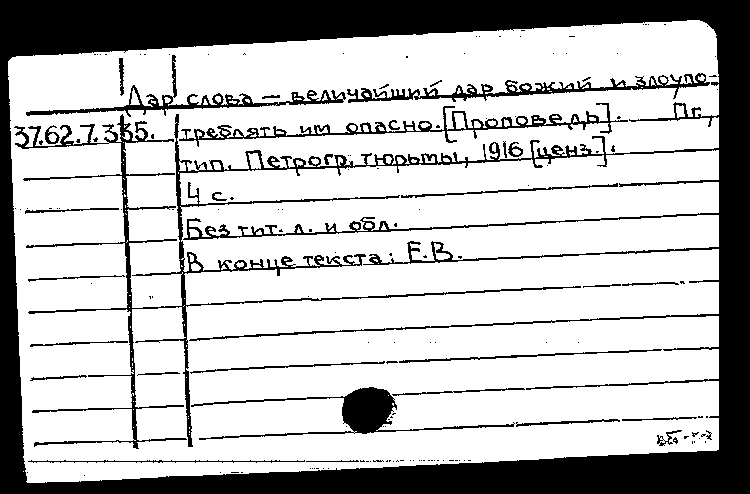 Дар слова — величайший дар божий и злоупо-
37.62.7.335. треблять им опасно. [Проповедь]. Пг.,
тип. Петрогр. тюрьмы, 1916 [ценз.].
4 с.
Без тит. л. и обл.
В конце текста: Е.В.